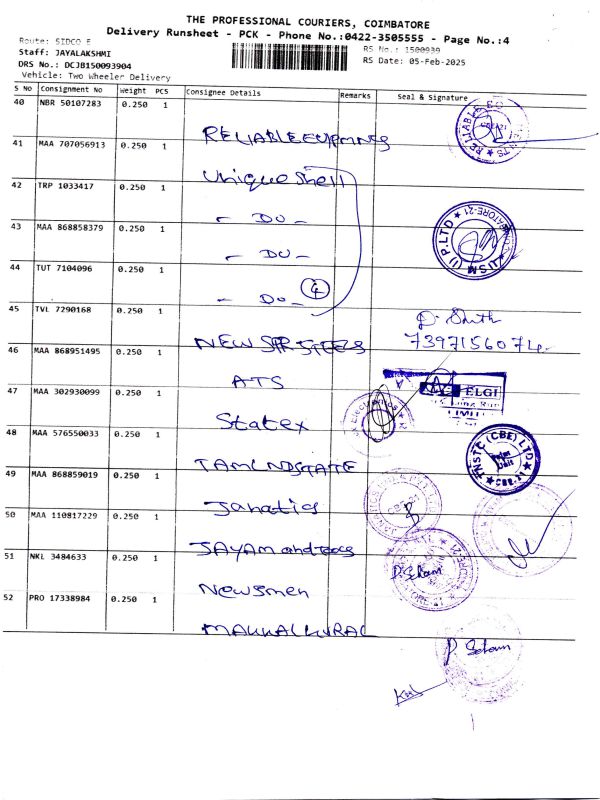 THE PROFESSIONAL COURIERS, COIMBATORE
Delivery Runsheet - PCK - Phone No.:0422-3505555 - Page No.:4
Route: SIDCO E
RS No.: 1500939
Staff: JAYALAKSHMI
RS Date: 05-Feb-2025
DRS No.: DCJB150093904
Vehicle: Two Wheeler Delivery
S No Consignment No Weight PCS Consignee Details Remarks Seal & Signature
40 NBR 50107283 0.250 1
RELIABLE
41 MAA 707056913 0.250 1
Unique Shell
42 TRP 1033417 0.250 1
- DO -
43 MAA 868858379 0.250 1
- DO -
44 TUT 7104096 0.250 1
- DO - 4
45 TVL 7290168 0.250 1
NEW STEELS
7397156074
46 MAA 868951495 0.250 1
ATS
ELGI
LIMITED
47 MAA 302930099 0.250 1
Statex
48 MAA 576550033 0.250 1
TAMLNDSTATE
TNSTC (CBE) LTD
CBE-
49 MAA 868859019 0.250 1
Janatics
50 MAA 110817229 0.250 1
JAYAM and
51 NKL 3484633 0.250 1
Newsmen
52 PRO 17338984 0.250 1
MAKKALKURAL